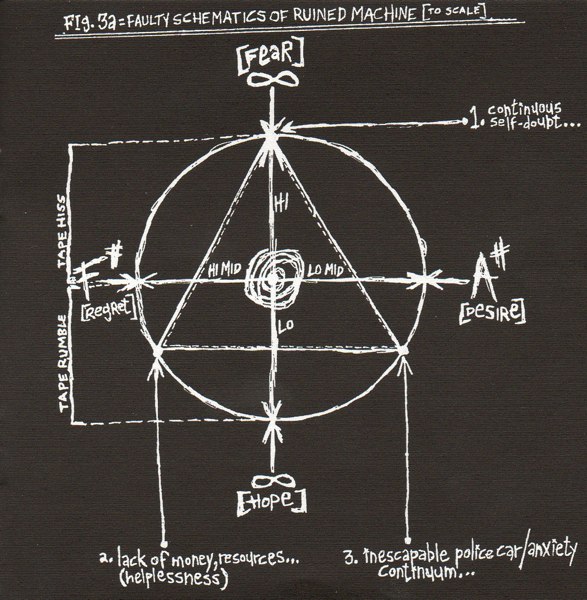 FIG. 3a = FAULTY SCHEMATICS OF RUINED MACHINE [TO SCALE]
[FEAR]
∞
1. continuous
self-doubt...
TAPE HISS
HI
F#
[REGRET]
HI MID
LO MID
A#
[DESIRE]
LO
TAPE RUMBLE
∞
[HOPE]
2. lack of money, resources...
(helplessness)
3. inescapable police car/anxiety
continuum...